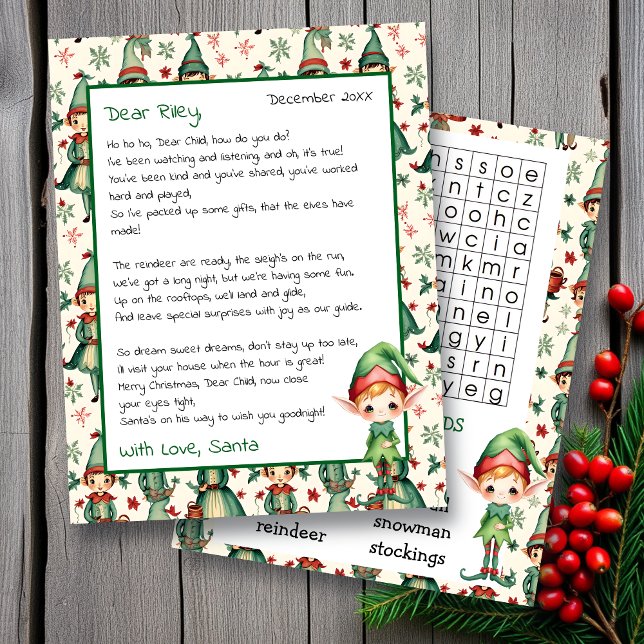 Dear Riley,
December 20XX
Ho ho ho, Dear Child, how do you do?
I've been watching and listening, and oh, it's true!
You've been kind and you've shared, you've worked
hard and played,
So I've packed up some gifts, that the elves have
made!
The reindeer are ready, the sleigh's on the run,
we've got a long night, but we're having some fun.
Up on the rooftops, we'll land and glide,
And leave special surprises with joy as our guide.
So dream sweet dreams, don't stay up too late,
I'll visit your house when the hour is great!
Merry Christmas, Dear Child, now close
your eyes tight,
Santa's on his way to wish you goodnight!
With Love, Santa
n s s o e
k n t c z
o o h c
w c i a
m k m r
a i n o
n e l
g y i
s r n
y e g
reindeer
snowman
stockings